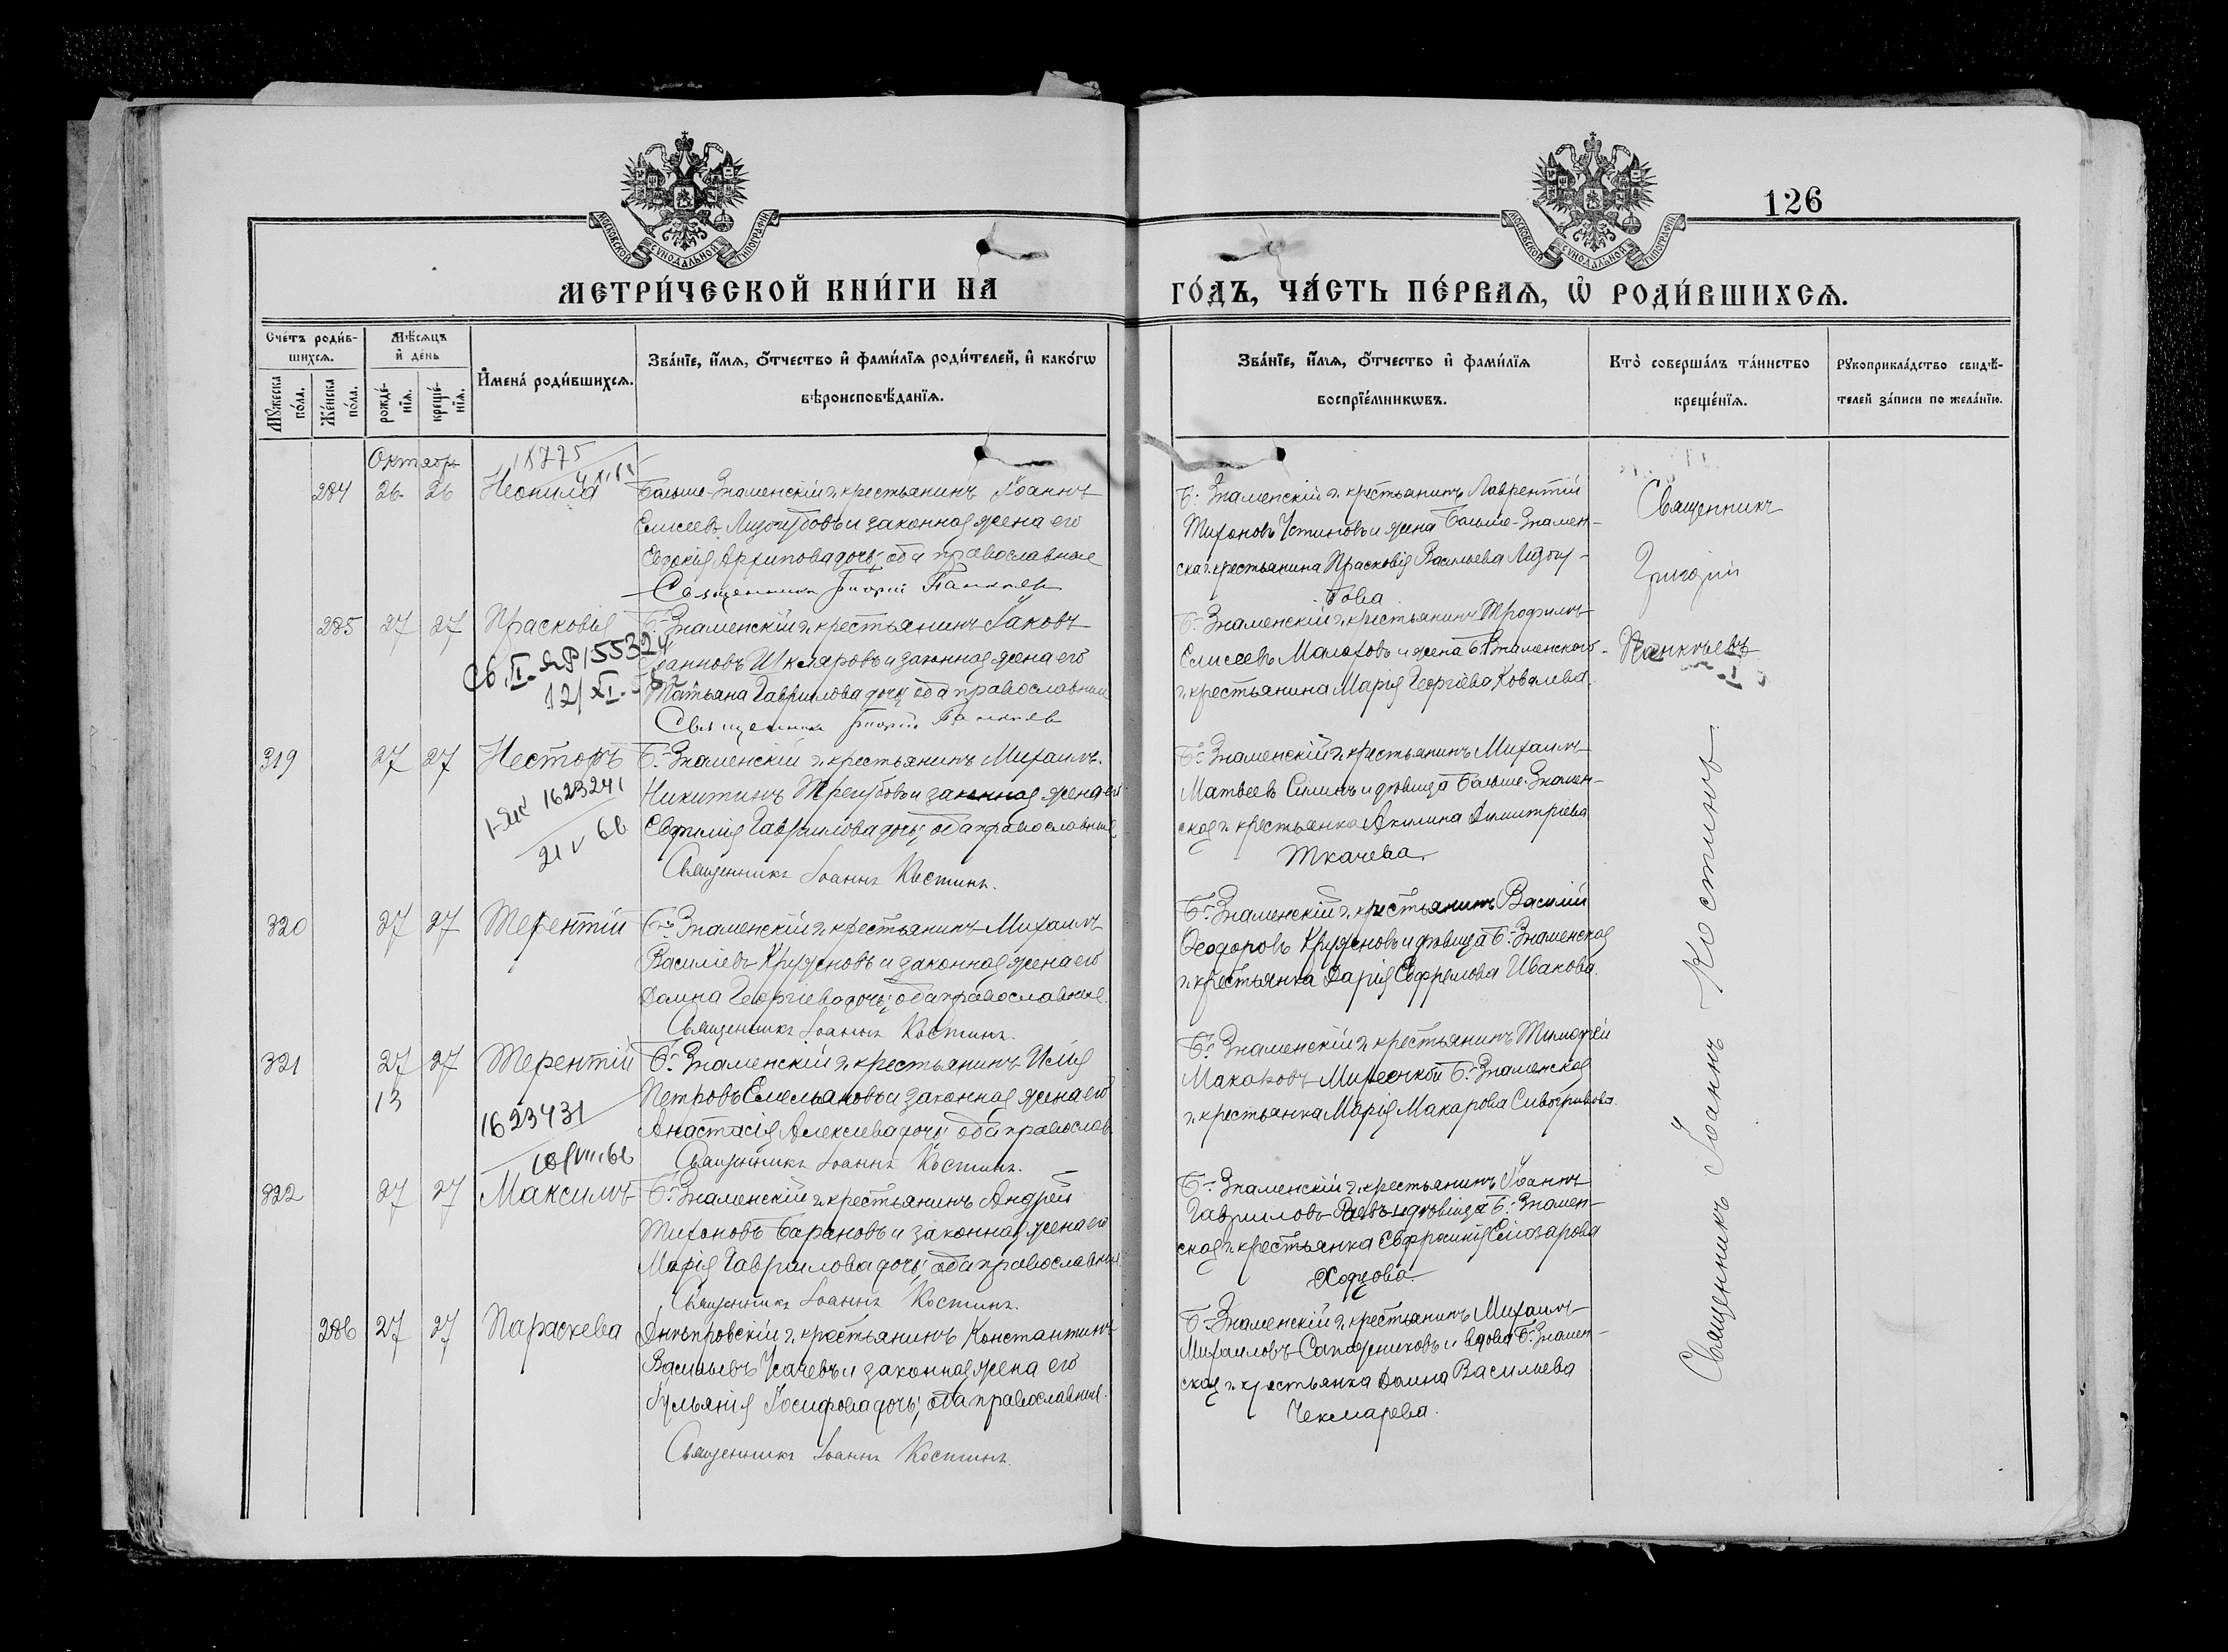 126
МОСКОВСКОЙ СѴНОДАЛЬНОЙ ТИПОГРАФІИ
МОСКОВСКОЙ СѴНОДАЛЬНОЙ ТИПОГРАФІИ
МЕТРИ́ЧЕСКОЙ КНИ́ГИ НА
ГО́ДЪ, ЧА́СТЬ ПЕ́РВАѦ, Ѡ҆ РОДИ́ВШИХСѦ.
Сче́тъ роди́в-
шихсѧ.
Мꙋ́жеска
по́ла.
Же́нска
по́ла.
Мѣ́сѧцъ
и҆ де́нь
рожде́-
нїѧ.
креще́-
нїѧ.
И҆мена́ роди́вшихсѧ.
Зва́нїе, и҆́мѧ, ѻ҆́тчество и҆ фами́лїѧ роди́телей, и҆ како́гѡ
вѣроисповѣ́данїѧ.
Зва́нїе, и҆́мѧ, ѻ҆́тчество и҆ фами́лїѧ
воспрїе́мникѡвъ.
Кто̀ соверша́лъ та́инство
креще́нїѧ.
Рꙋкоприкла́дство свидѣ́-
телей за́писи по жела́нїю.
Октябрь
18775
284 26. 26 Неонила
Больше-Знаменскій г. крестьянинъ Іоаннъ
Елисеевъ Лизогубовъ и законная жена его
Евдокія Архипова дочь; оба православные
Священникъ Григорій Панкѣев
Б.-Знаменскій г. крестьянинъ Лаврентій
Тихоновъ Устиновъ и жена Больше-Знамен-
ска г. крестьянина Прасковія Васильева Лизогу-
бова
285 27 27 Прасковія
Св. II-ЯР 155324
12/XI
Б.-Знаменскій г. крестьянинъ Іаковъ
Іоанновъ Шкляровъ и законная жена его
Татьяна Гаврилова дочь; оба православные
Священникъ Григорій Панкѣев
Б.-Знаменскій г. крестьянинъ Трофимъ
Елисеевъ Малаховъ и жена Б. Знаменского
г. крестьянина Марія Георгіева Ковалева.
Священникъ
Григорій
Панкѣевъ
319 27 27 Несторъ
1-ЯК 1623241
21 V 66
Б.-Знаменскій г. крестьянинъ Михаилъ
Никитинъ Трегубовъ и законная жена его
Гаврилова дочь; оба православные
Священникъ Іоаннъ Костинъ.
Б.-Знаменскій г. крестьянинъ Михаилъ
Матвеевъ Силинъ и дѣвица Больше-Знамен-
ская г. крестьянка Акилина Димитріева
Ткачева.
320 27 27 Терентій
Б.-Знаменскій г. крестьянинъ Михаилъ
Василіевъ Круженовъ и законная жена его
Домна Георгіева дочь; оба православные.
Священникъ Іоаннъ Костинъ.
Б.-Знаменскій г. крестьянинъ Василій
Ѳеодоровъ Круженовъ и дѣвица Б.-Знаменская
г. крестьянка Дарія Евфремова Ивакова.
321 27 27 Терентій
13
1623431
10 VIII 66
Б.-Знаменскій г. крестьянинъ Илія
Петровъ Емельяновъ и законная жена его
Анастасія Алексіева дочь; оба православ.
Священникъ Іоаннъ Костинъ.
Б.-Знаменскій г. крестьянинъ Тимоѳей
Макаровъ и Б.-Знаменская
г. крестьянка Марія Макарова Сивогривова.
322 27 27 Максимъ
Б.-Знаменскій г. крестьянинъ Андрей
Тихоновъ Барановъ и законная жена его
Марія Гаврилова дочь; оба православные
Священникъ Іоаннъ Костинъ.
Б.-Знаменскій г. крестьянинъ Іоаннъ
Гавриловъ Раевъ и дѣвица Б.-Знамен-
ская г. крестьянка Евфросинія Елиозарова
Ходцова.
286 27 27 Параскева
Днѣпровскій г. крестьянинъ Константинъ
Васильевъ Усачевъ и законная жена его
Іульянія Іосифова дочь; оба православные.
Священникъ Іоаннъ Костинъ.
Б.-Знаменскій г. крестьянинъ Михаилъ
Михаиловъ Сапожниковъ и вдова Б.-Знамен-
ская г. крестьянка Домна Васильева
Чекмарева.
Священникъ Іоаннъ Костинъ.